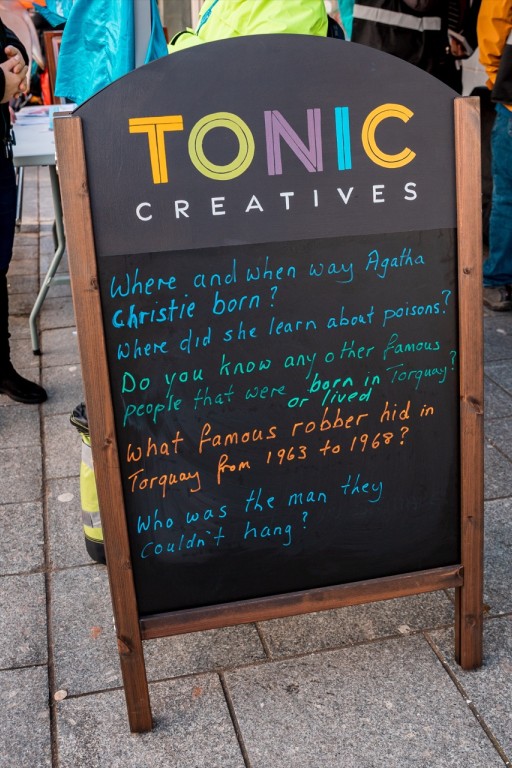 TONIC
CREATIVES
Where and when way Agatha
Christie born?
Where did she learn about poisons?
Do you know any other famous
people that were born in Torquay?
or lived
What famous robber hid in
Torquay from 1963 to 1968?
Who was the man they
couldn't hang?